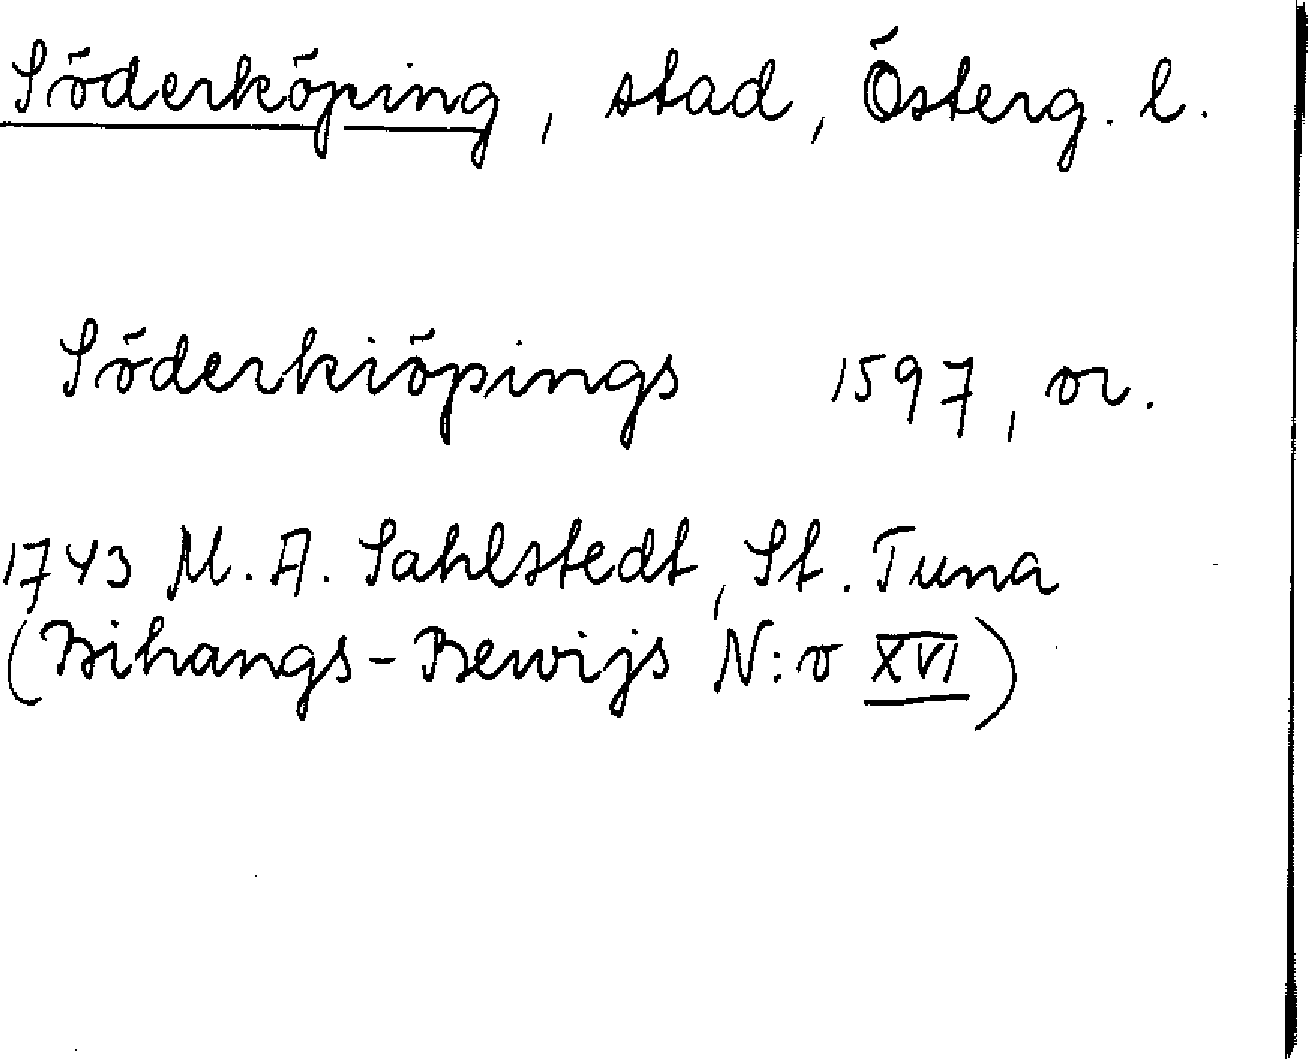 Söderköping, stad, Österg. l.
Söderkiöpings 1597, or.
1743 M. A. Sahlstedt, St. Tuna
(Bihangs-Bewijs N:o XVI)